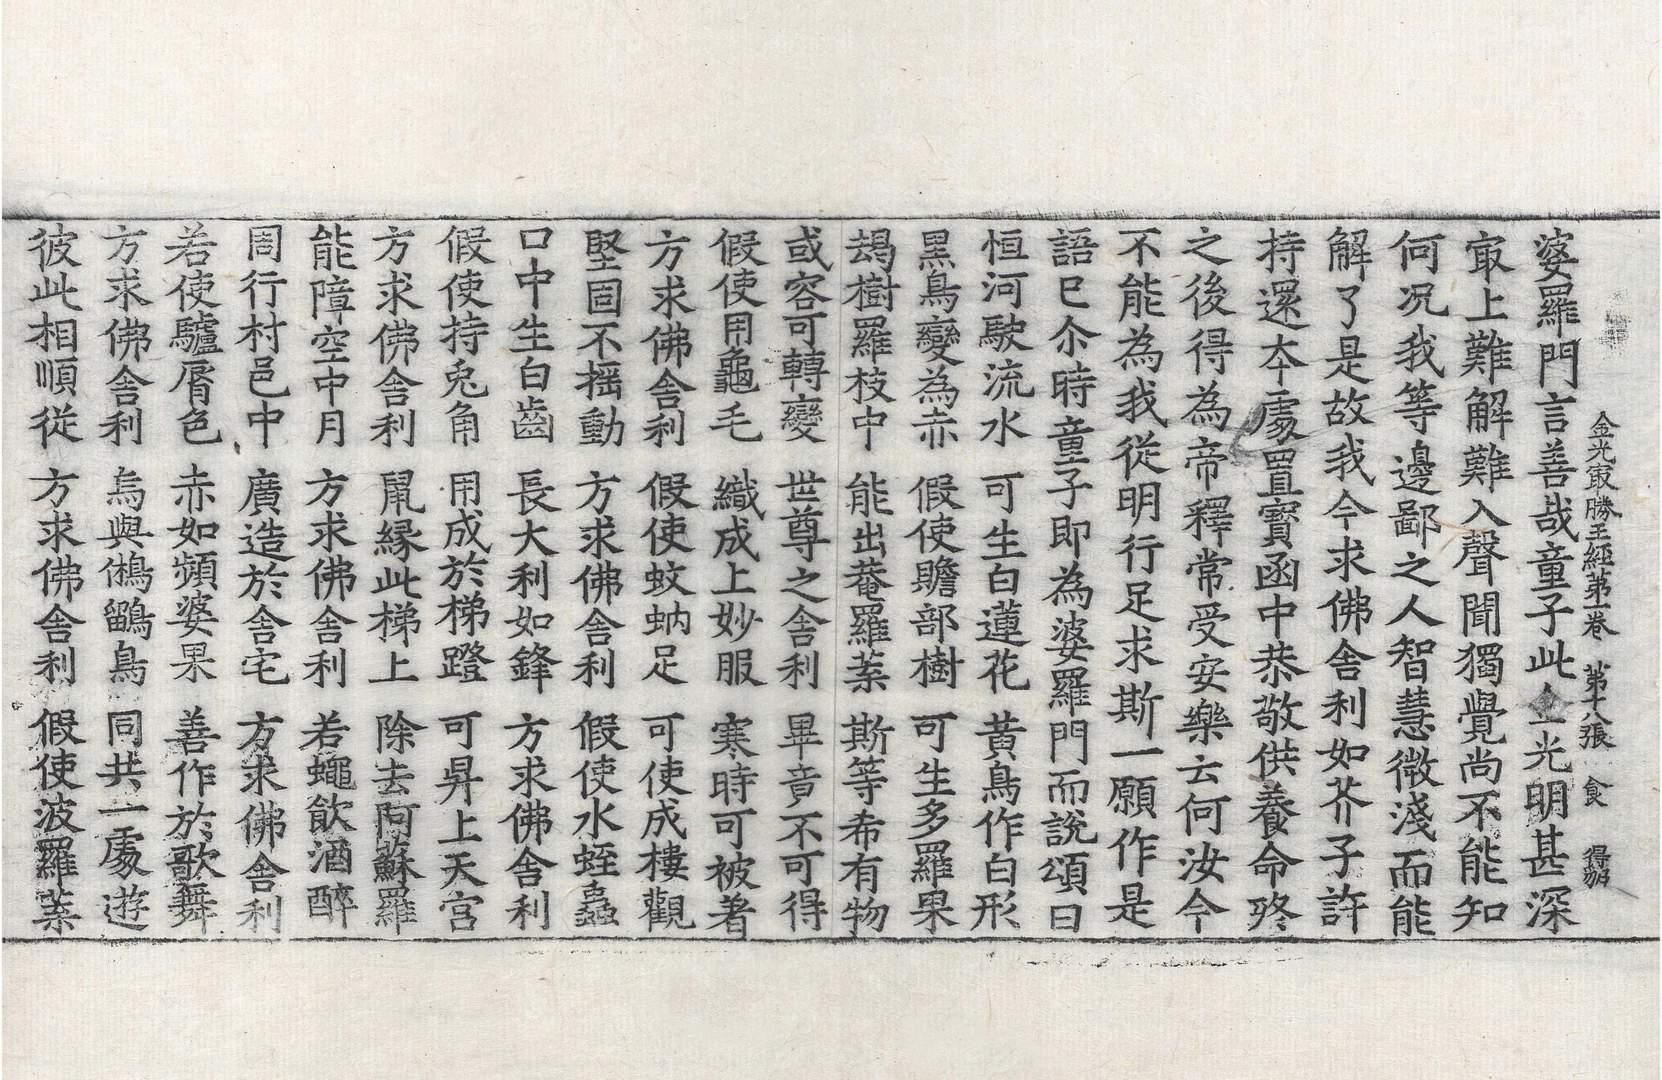 金光㝡勝王經第一卷 第十八張 食 得㔹
婆羅門言善哉童子此金光明甚深
㝡上難解難入聲聞獨覺尚不能知
何况我等邊鄙之人智慧微淺而能
解了是故我今求佛舍利如芥子許
持還夲處置寳函中恭敬供養命終
之後得為帝釋常受安樂云何汝今
不能為我從明行足求斯一願作是
語已尒時童子即為婆羅門而說頌曰
恒河駛流水 可生白蓮花 黃鳥作白形
黑鳥變為赤 假使贍部樹 可生多羅果
朅樹羅枝中 能出菴羅葉 斯等希有物
或容可轉變 世尊之舍利 畢竟不可得
假使用龜毛 織成上妙服 寒時可被著
方求佛舍利 假使蚊蚋足 可使成樓觀
堅固不揺動 方求佛舍利 假使水蛭蟲
口中生白齒 長大利如鋒 方求佛舍利
假使持兎角 用成於梯蹬 可昇上天宮
方求佛舍利 鼠緣此梯上 除去阿蘇羅
能障空中月 方求佛舍利 若蠅飮酒醉
周行村邑中 廣造於舍宅 方求佛舍利
若使驢脣色 赤如頻婆果 善作於歌舞
方求佛舍利 烏與鵂鶹鳥 同共一處遊
彼此相順從 方求佛舍利 假使波羅葉